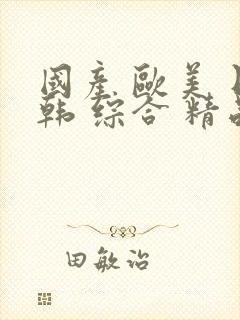 國產 歐美
韩 综合 精
田敏治